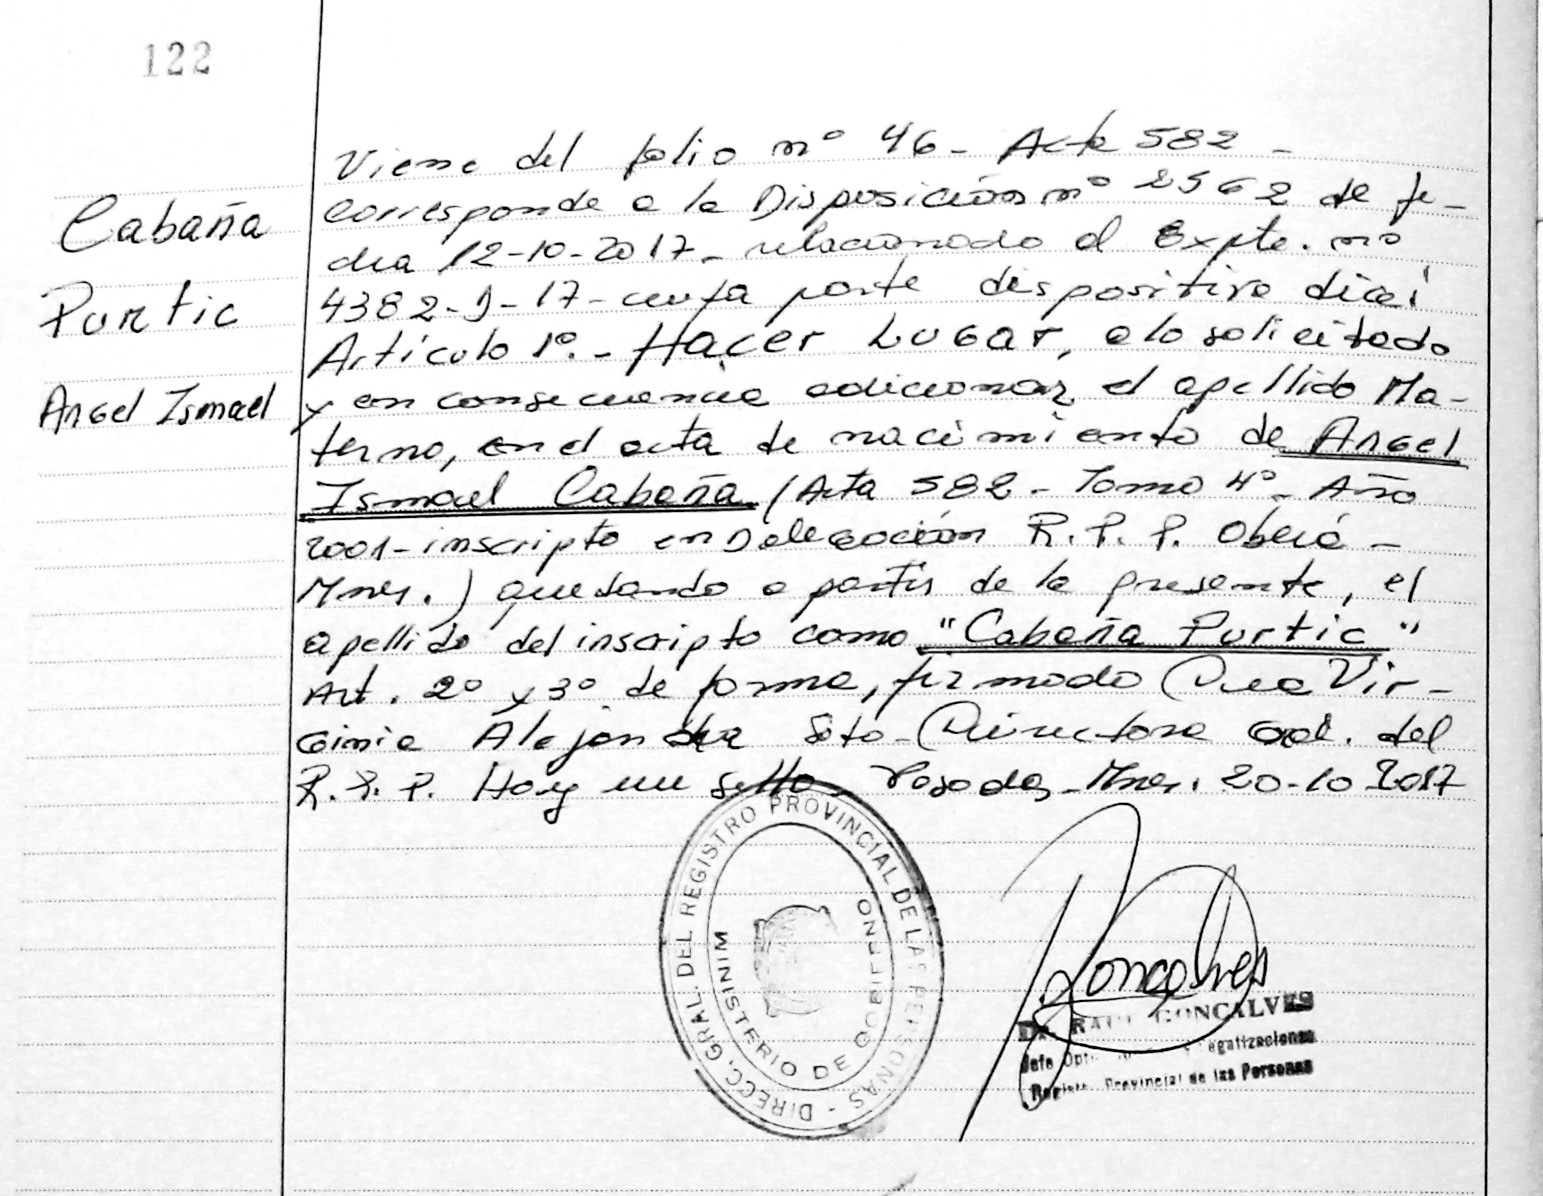 122
Cabaña
Purtic
Angel Ismael
Viene del folio nº 46- Acta 582-
Corresponde a la Disposición nº 2562 de fe-
cha 12-10-2017- relacionado el Expte. nº
4382-J-17- cuya parte dispositiva dice:
Artículo 1º.- Hacer Lugar, a lo solicitado
y en consecuencia adicionar el apellido Ma-
terno, en el acta de nacimiento de Angel
Ismael Cabaña (Acta 582- Tomo 4º- Año
2001- inscripto en Delegación R.P.P. Oberá-
Mnes.) quedando a partir de la presente, el
apellido del inscripto como "Cabaña Purtic"
Art. 2º y 3º de forma, firmado Dra Vir-
ginia Alejandra Soto- Directora Gral. del
R.P.P. Hay un sello- Posadas- Mnes. 20-10-2017
DIRECC. GRAL. DEL REGISTRO PROVINCIAL DE LAS PERSONAS -
MINISTERIO DE GOBIERNO
Goncalves
Dr. RAUL GONCALVES
Jefe Dpto. Legalizaciones
Registro Provincial de las Personas